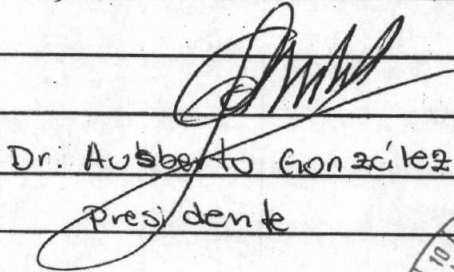 Dr. Ausberto González
presidente
10